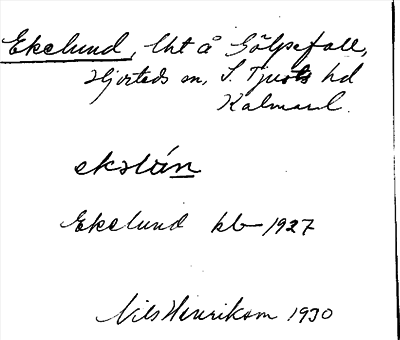 Ekelund, lht å Gölpefall,
Hjorteds sn, S. Tjusts hd
Kalmar l.
ekəlún
Ekelund kb 1927
Nils Henrikson 1930